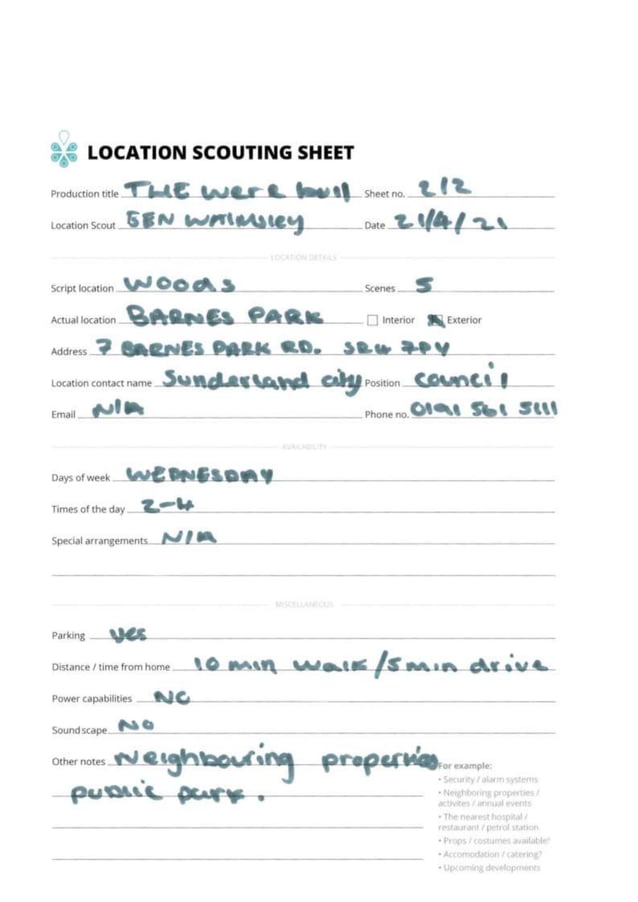 LOCATION SCOUTING SHEET
Production title THE were bull Sheet no. 2/2
Location Scout BEN WALMSLEY Date 21/4/21
LOCATION DETAILS
Script location WOODS Scenes 5
Actual location BARNES PARK Interior Exterior
Address 7 BARNES PARK RD. SR4 7PY
Location contact name Sunderland city Position council
Email N/A Phone no. 0191 561 5111
AVAILABILITY
Days of week WEDNESDAY
Times of the day 2-4
Special arrangements N/A
MISCELLANEOUS
Parking yes
Distance / time from home 10 min walk /5 min drive
Power capabilities NO
Sound scape NO
Other notes Neighbouring properties
public park.
For example:
• Security / alarm systems
• Neighboring properties /
activites / annual events
• The nearest hospital /
restaurant / petrol station
• Props / costumes available?
• Accomodation / catering?
• Upcoming developments